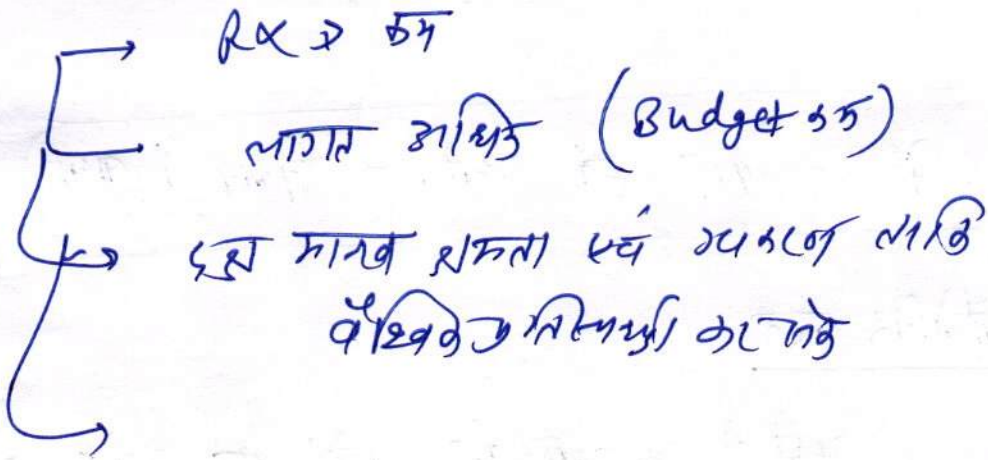 कम
लागत अधिक (Budget कम)
मानव क्षमता एवं उपकरण ताकि
वैश्विक प्रतिस्पर्धा कर सके